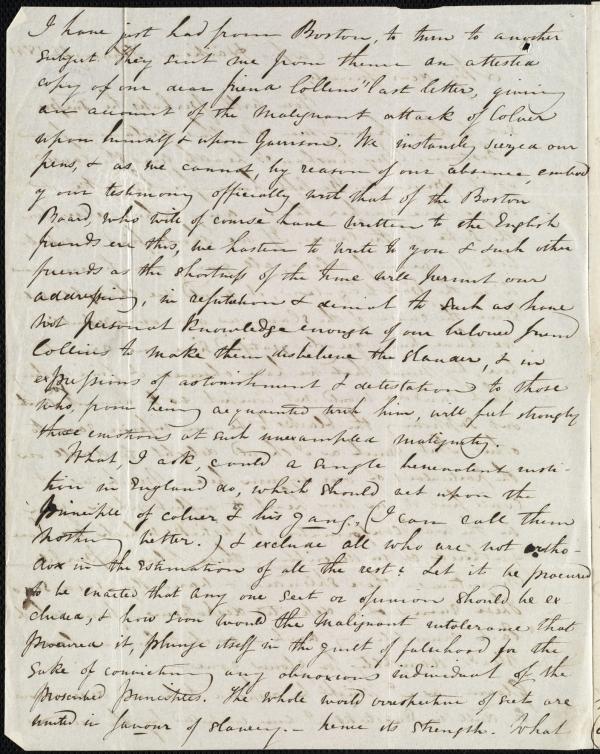 I have just had from Boston, to turn to another
subject. They sent me from thence an attested
copy of our dear friend Collins' last letter, giving
an account of the Malignant attack of Colver
upon himself & upon Garrison. We instantly seized our
pens, & as we cannot, by reason of our absence, embod
y our testimony officially with that of the Boston
Board, who will of course have written to the English
friends ere this, we hasten to write to you & such other
friends as the shortness of the time will permit our
addressing, in refutation & denial to such as have
not personal knowledge enough of our beloved friend
Collins to make them disbelieve the slander, & in
expressions of astonishment & detestation to those
who, from being acquainted with him, will feel strongly
those emotions at such unexampled malignity.
What, I ask, could a single benevolent insti-
tion in England do, which should act upon the
principle of Colver & his gang, (I can call them
nothing better.) & exclude all who are not ortho-
dox in the estimation of all the rest? Let it be procured
to be enacted that any one sect or opinion should be ex
cluded, & how soon would the Malignant intolerance that
procured it, plunge itself in the guilt of falsehood for the
sake of convicting any obnoxious individual of the
proscribed principles. The whole world irrespective of sect are
united in favour of slavery. - hence its strength. What